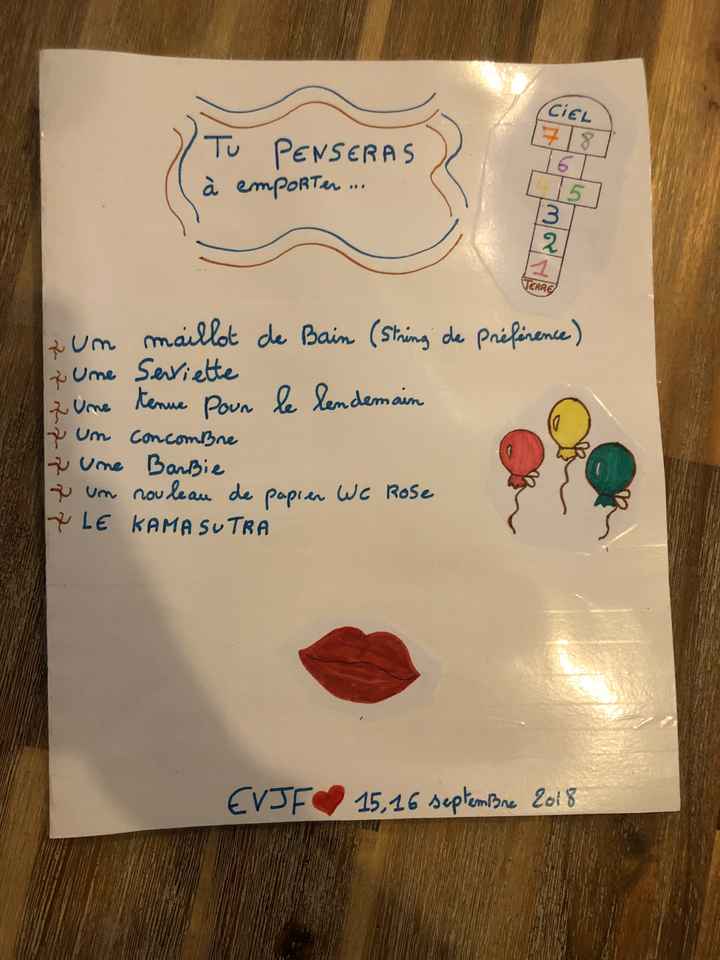 Tu PENSERAS
à emporter...
CIEL
7 8
6
4 5
3
2
1
TERRE
Un maillot de Bain (String de préférence)
Une Serviette
Une tenue pour le lendemain
Un concombre
Une Barbie
Un rouleau de papier WC Rose
LE KAMASUTRA
EVJF ❤ 15,16 septembre 2018